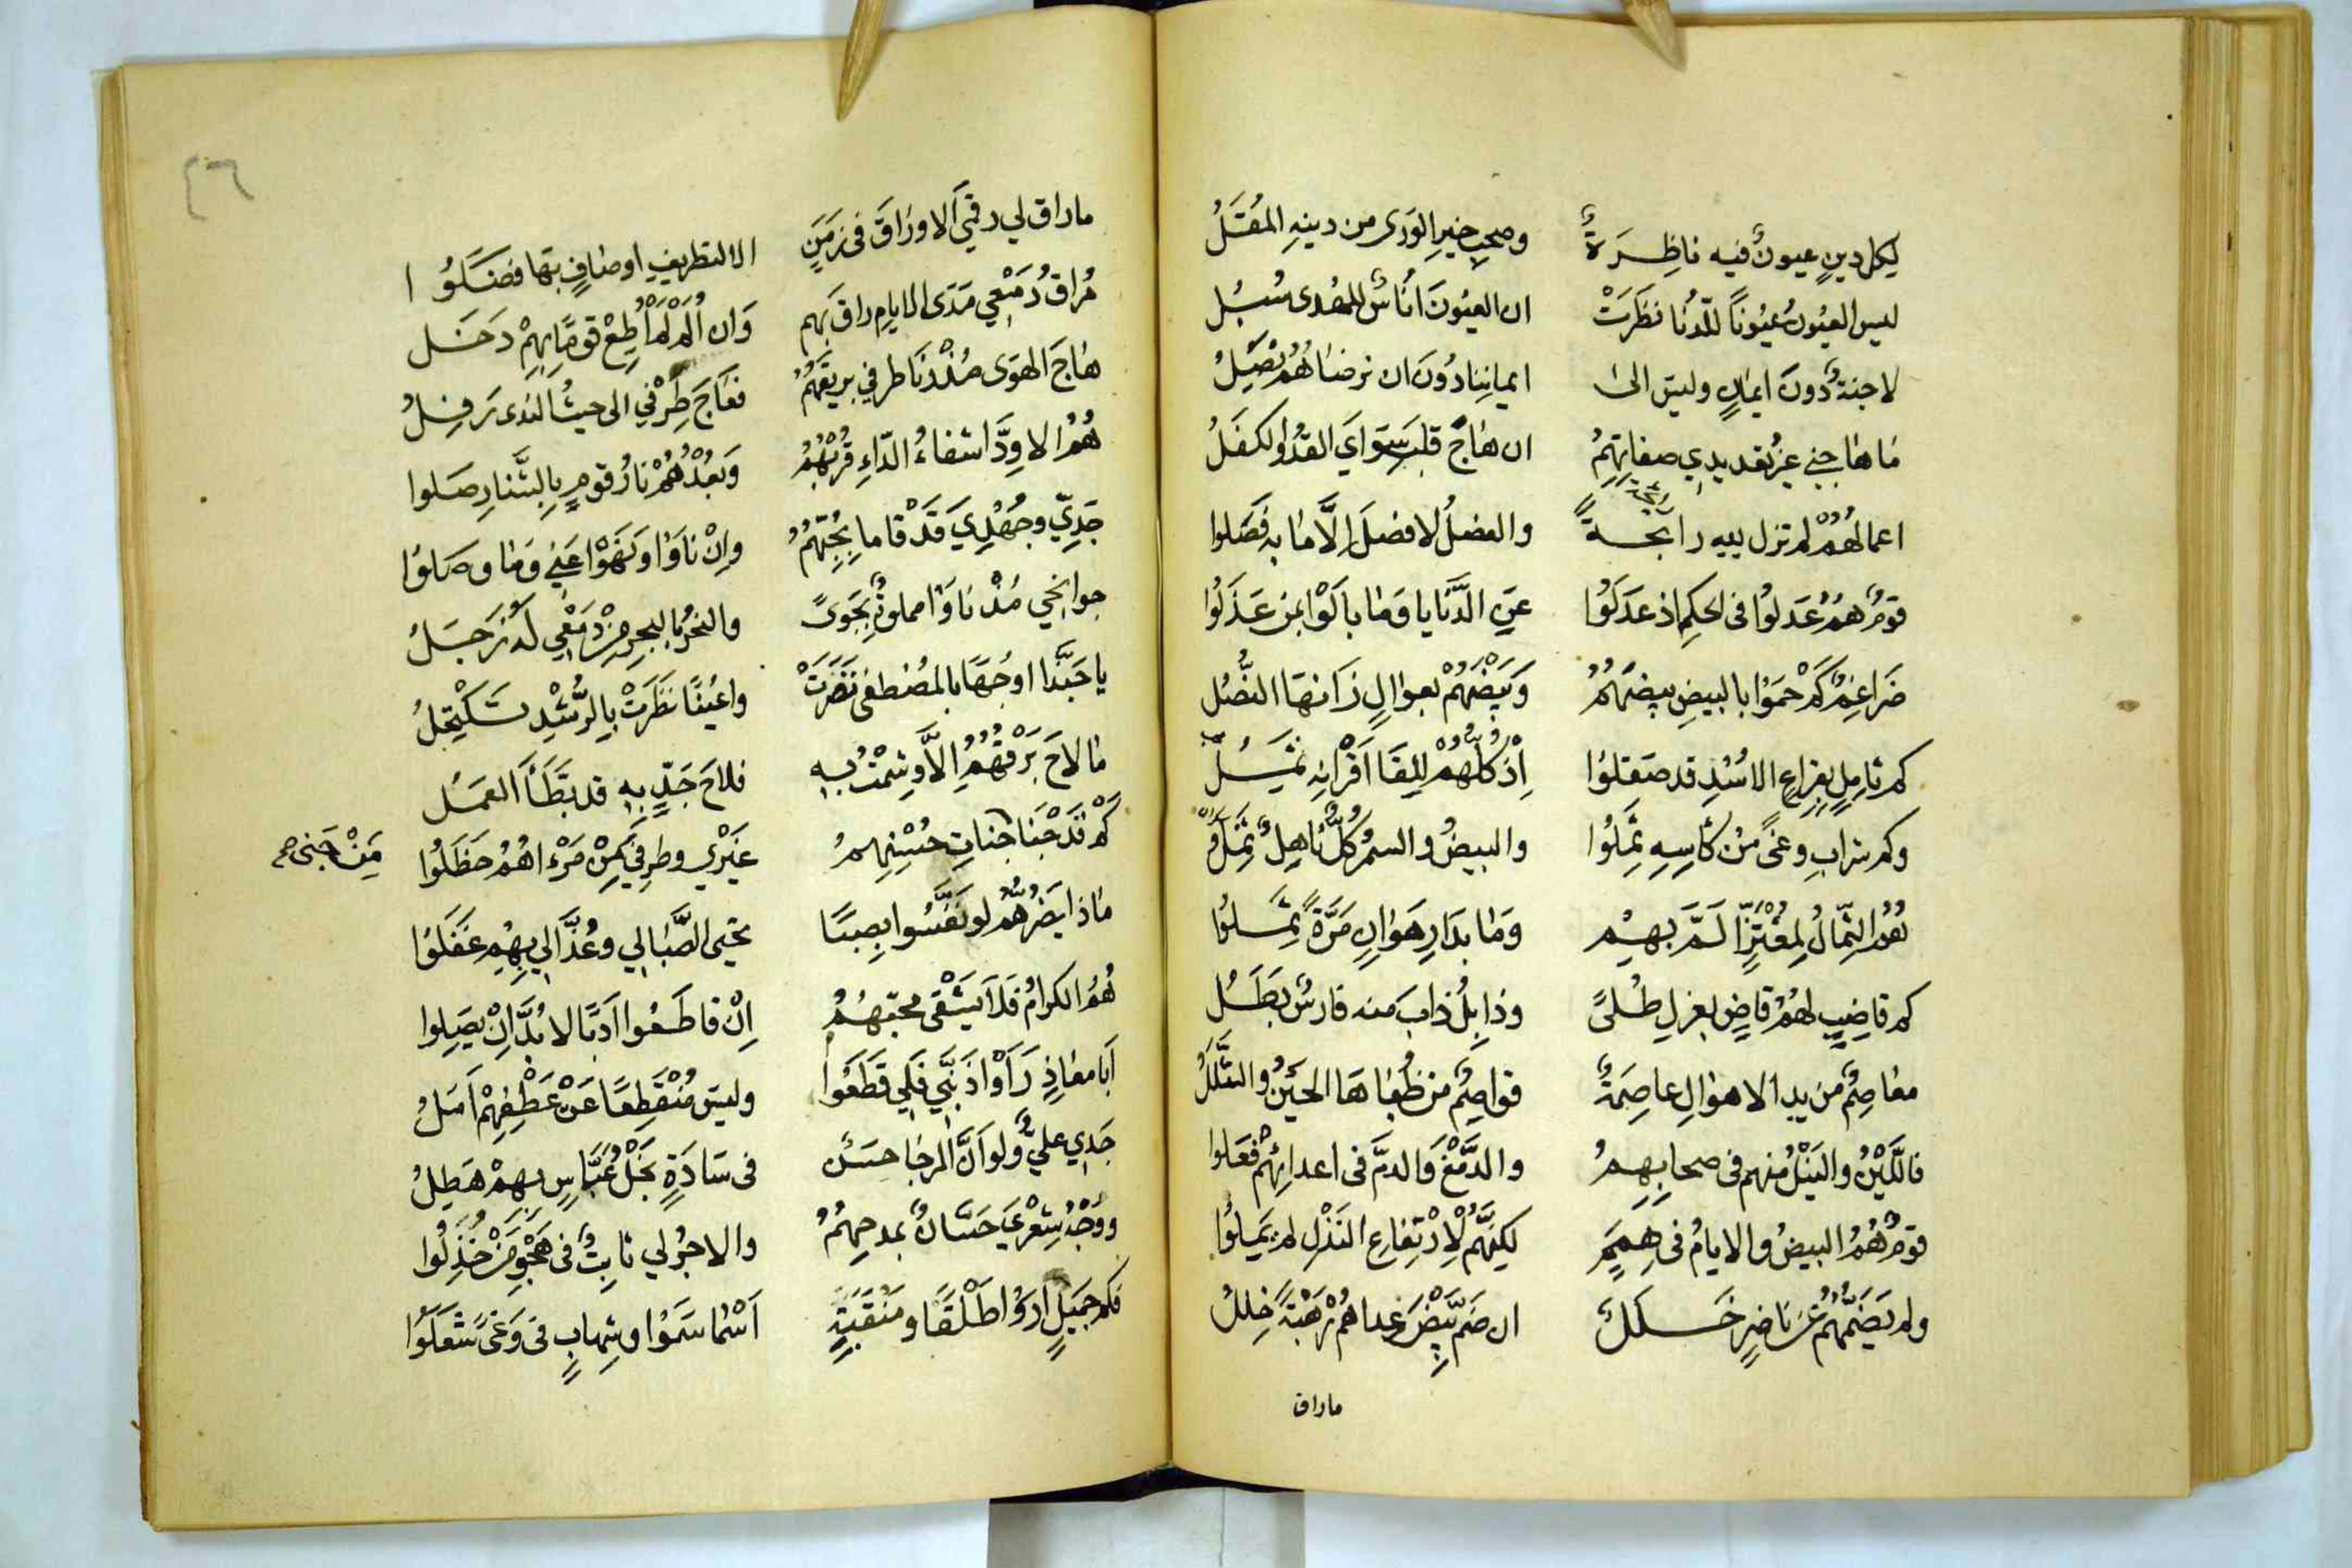 لِكل دينٍ عيونٌ فيه ناظِرَةٌ وصحبِ خيرِ الوَرى من دينهِ المُقَلُ
ليس العيُونُ عيُونًا للدُنا نظَرَتْ ان العيُونَ اناسٌ للهُدى سُبُل
لا جنةٌ دونَ ايمانٍ وليسَ الىٰ ايمانِنا دُونَ ان نرضاهُمُ نصِلُ
ما هاجني غيرُ تعديدي صفاتِهِمُ ان هاجَ قلبَ سِوَايَ القدُ والكفَلُ
اعمالهُمْ لم تزل بيه رابحةً والفضلُ لا فضلَ إلَّا ما به فضَلوا
قومٌ همُ عَدلوُا فى الحكِم اذ عدَلَوُا عنِ الدَّنايا وَما بالَوْا بمن عَذَلُوا
ضَراغِمٌ كَمْ حمَوْا بالبيضِ بيضَهُمُ وَبيْضُهُمْ بعوالٍ زَانهَا النصُل
كم ثامِلٍ بقِراعِ الاسُدِ قد صقلوُا اِذْ كلُّهُمْ لِلِقَا اَقْرانِه
وكم شرابِ وغىً مِنْ كأسِهِ ثمِلُوا والبيضُ والسمُر كلٌّ ناهِلٌ ثمِلٌ
همُ الثِّمالُ لِمُعْتَرٍّ الَمَّ بهِمْ وَما بدَارِ هَوانٍ مَرَّةً ثمِلوُا
كم قاضِبٍ لهُمُ قاضٍ بعزلِ طُلىً وذابِلٌ ذابَ منه فارسٌ بَطَلُ
معاصِمٌ من يدِ الاهوالِ عاصِمَةٌ قواصِمٌ من ظُباهَا الحَيْنُ والثَّللُ
فاللَّيْنُ والنيْلُ منهم فى صحابِهِمُ والدَّمْغُ والدمّ فى اعدائِهُمْ فعَلوا
قومٌ هُمُ البيضُ والايامُ فى هِممٍ لكِنَّهُم لِارْتفاعِ النذْلِ لم يمِيلوُا
ولم يَضُمَّهُمُ عن ناضِرٍ خَلَلٌ ان ضمَّ بِيْضَ عداهُمْ رَهْبَةً خِللُ
ماراق
٤٦
ماراق لي رقيَ الاوراقَ فى زمَنٍ الا لتطريفِ اوصافٍ بها فضَلُوا
مُراقُ دَمْعِي مَدَى الايامِ راقَ بهم وَان أُلَمْ لَمْ أُطِعْ قومًا بِهِمْ دَخَل
هاجَ الهوَى مُنْذُ ناطر في بريقَهُمُ فعَاجَ طِرْفي الى حيثُ الندى نَزِلُ
هُمُ الاوِدَّا شفاءُ الدّاءِ قرُبُهُمُ وَبعُدُهُمْ نارُ قومٍ بِالشَّنارِ صَلوا
جَدِّيّ وجُهْدِيَ قَدْ قاما بِحُبِّهِمُ وإنْ ناوَا وَلَهَوْا عَنِّي وَما وصَلوُا
جوانحي مُذْ ناوَا مملوةٌ بجَوىً والنحرُ بالبحرِ مِنْ دَمْعِي لَهُ زَجَلُ
يا حَبَّذا اوجُهًا بالمصُطفى نضَرَتْ واعيُنًا نظَرَتْ بِالرُّشْدِ تَكْتَحِلُ
ما لاحَ بَرْقُهُمُ إلَّا وشِمْتُ بهِ فلاحَ جَدٍّ بهِ قد بَطَّأَ العَمَل
كم قَدْ جَنا جناتِ حُسْنِهِمُ غَيْري وطرفيَ مِنْ مَرْءاهُمُ حظَلُوا مَنْ جَنى صح
ماذا يضرُهُمُ لو نفَّسُوا بِصبًا تحيى الصَّبا لي وعُذَّالي بِهِمِ غفَلَوُا
هُمُ الكرامُ فلَا يَشْقى محبّهُمُ إنْ قاطَعُوا اَدبًا لا بُدَّ إنْ يصَلِوا
أَبا معاذٍ رَأَوْا ذَنبي فلَي قَطَعُوا وليسَ مُنْقطِعًا عَنْ عَطْفِهِمْ اَمَلُ
جَدِي عليٌّ ولو اَنَّ الرجا حسَنٌ فى سَادَةٍ نجَلُ عبَّاسٍ بِهِمْ هَطِلُ
ووَجْهُ شِعْرِيَ حَسَّانٌ بمدحِهِمُ والاجرُ لي ثابِتٌ فى هَجْوِ مَنْ خُذِلُوا
فكم جميَلٍ ارَوْا طَلْقًا ومَنْقَبَةٍ اَسْما سَمَوُا وشِهابٍ فى وَغىً شعَلَوُا